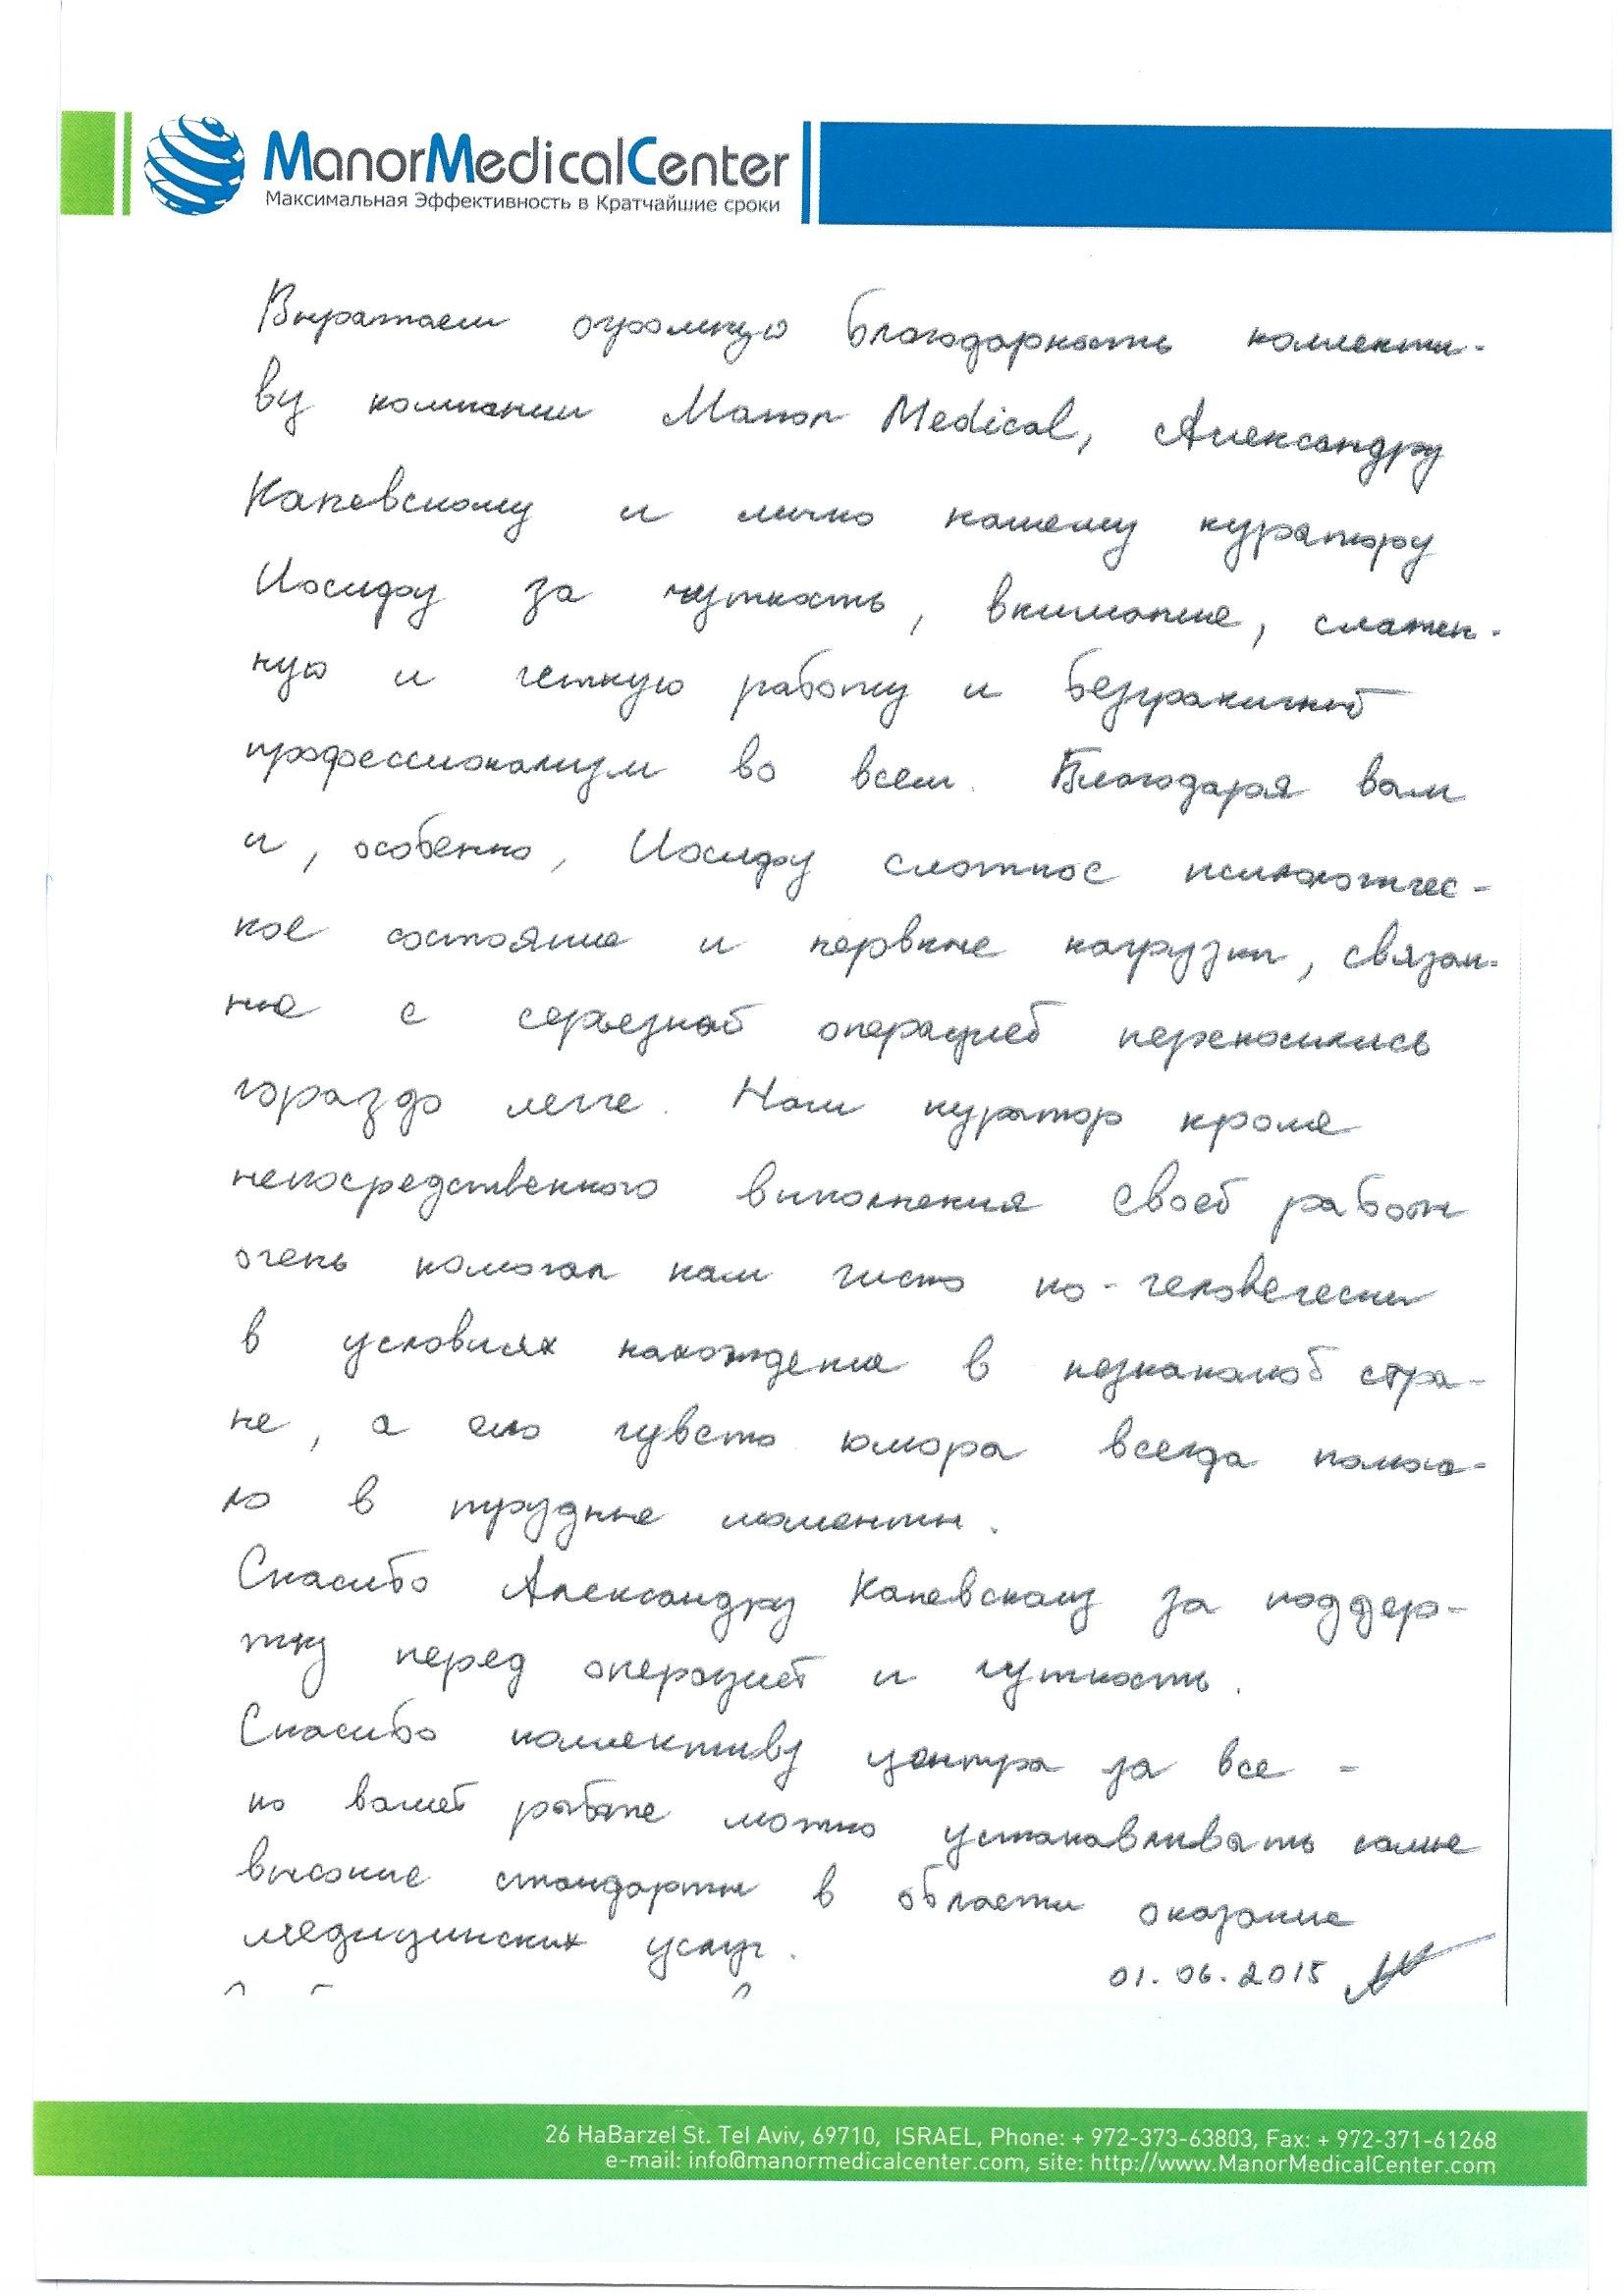 ManorMedicalCenter
Максимальная Эффективность в Кратчайшие сроки
Выражаем огромную благодарность коллекти-
ву компании Manor Medical, Александру
Каневскому и лично нашему куратору
Иосифу за чуткость, внимание, слажен-
ную и четкую работу и безграничный
профессионализм во всем. Благодаря вам
и, особенно, Иосифу сложное психологичес-
кое состояние и нервные нагрузки, связан-
ные с серьезной операцией переносились
гораздо легче. Наш куратор кроме
непосредственного выполнения своей работы
очень помогал нам чисто по-человечески
в условиях нахождения в незнакомой стра-
не, а его чувство юмора всегда помога-
ло в трудные моменты.
Спасибо Александру Каневскому за поддер-
жку перед операцией и чуткость.
Спасибо коллективу центра за все -
по вашей работе можно устанавливать самые
высокие стандарты в области оказания
медицинских услуг.
01.06.2015
26 HaBarzel St. Tel Aviv, 69710, ISRAEL, Phone: + 972-373-63803, Fax: + 972-371-61268
e-mail: info@manormedicalcenter.com, site: http://www.ManorMedicalCenter.com